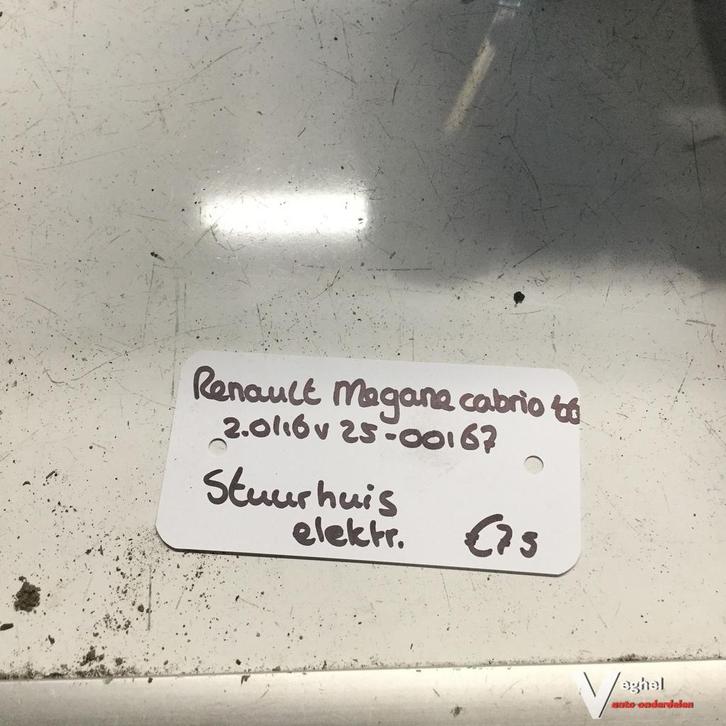 Renault Megane cabrio
2.0116v 25-00167
Stuurhuis
elektr. €75
Veghel
auto onderdelen